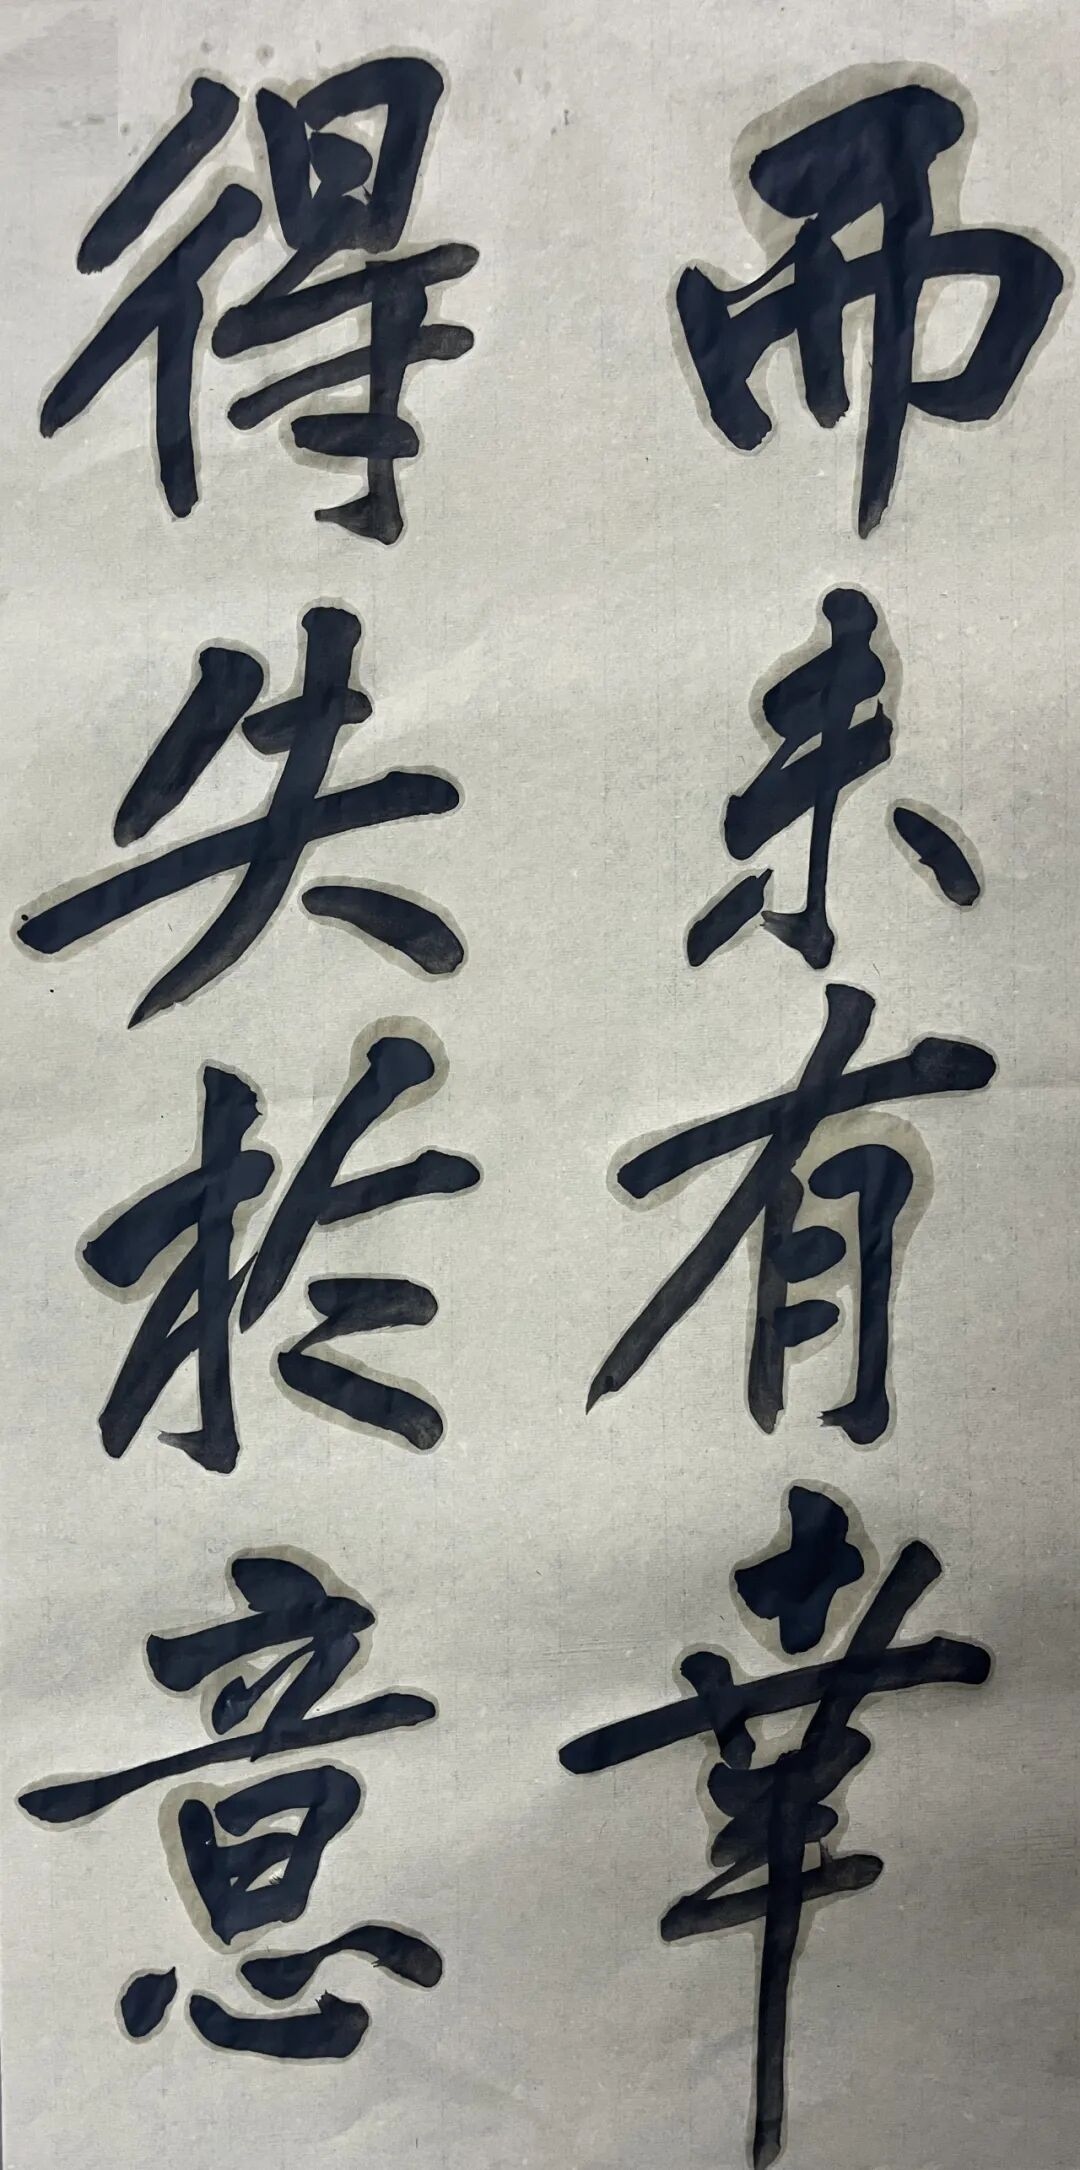 而未有華
得失於意